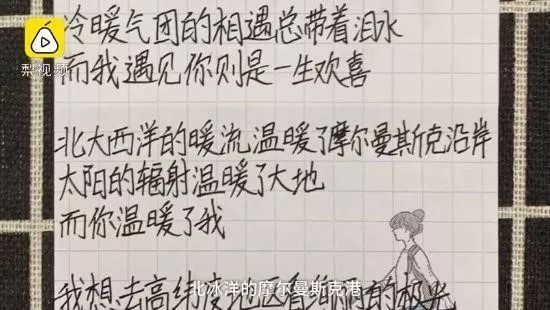 梨视频
冷暖气团的相遇总带着泪水
而我遇见你则是一生欢喜
北大西洋的暖流温暖了摩尔曼斯克沿岸
太阳的辐射温暖了大地
而你温暖了我
我想去高纬度地区看绚丽的极光
北冰洋的摩尔曼斯克港